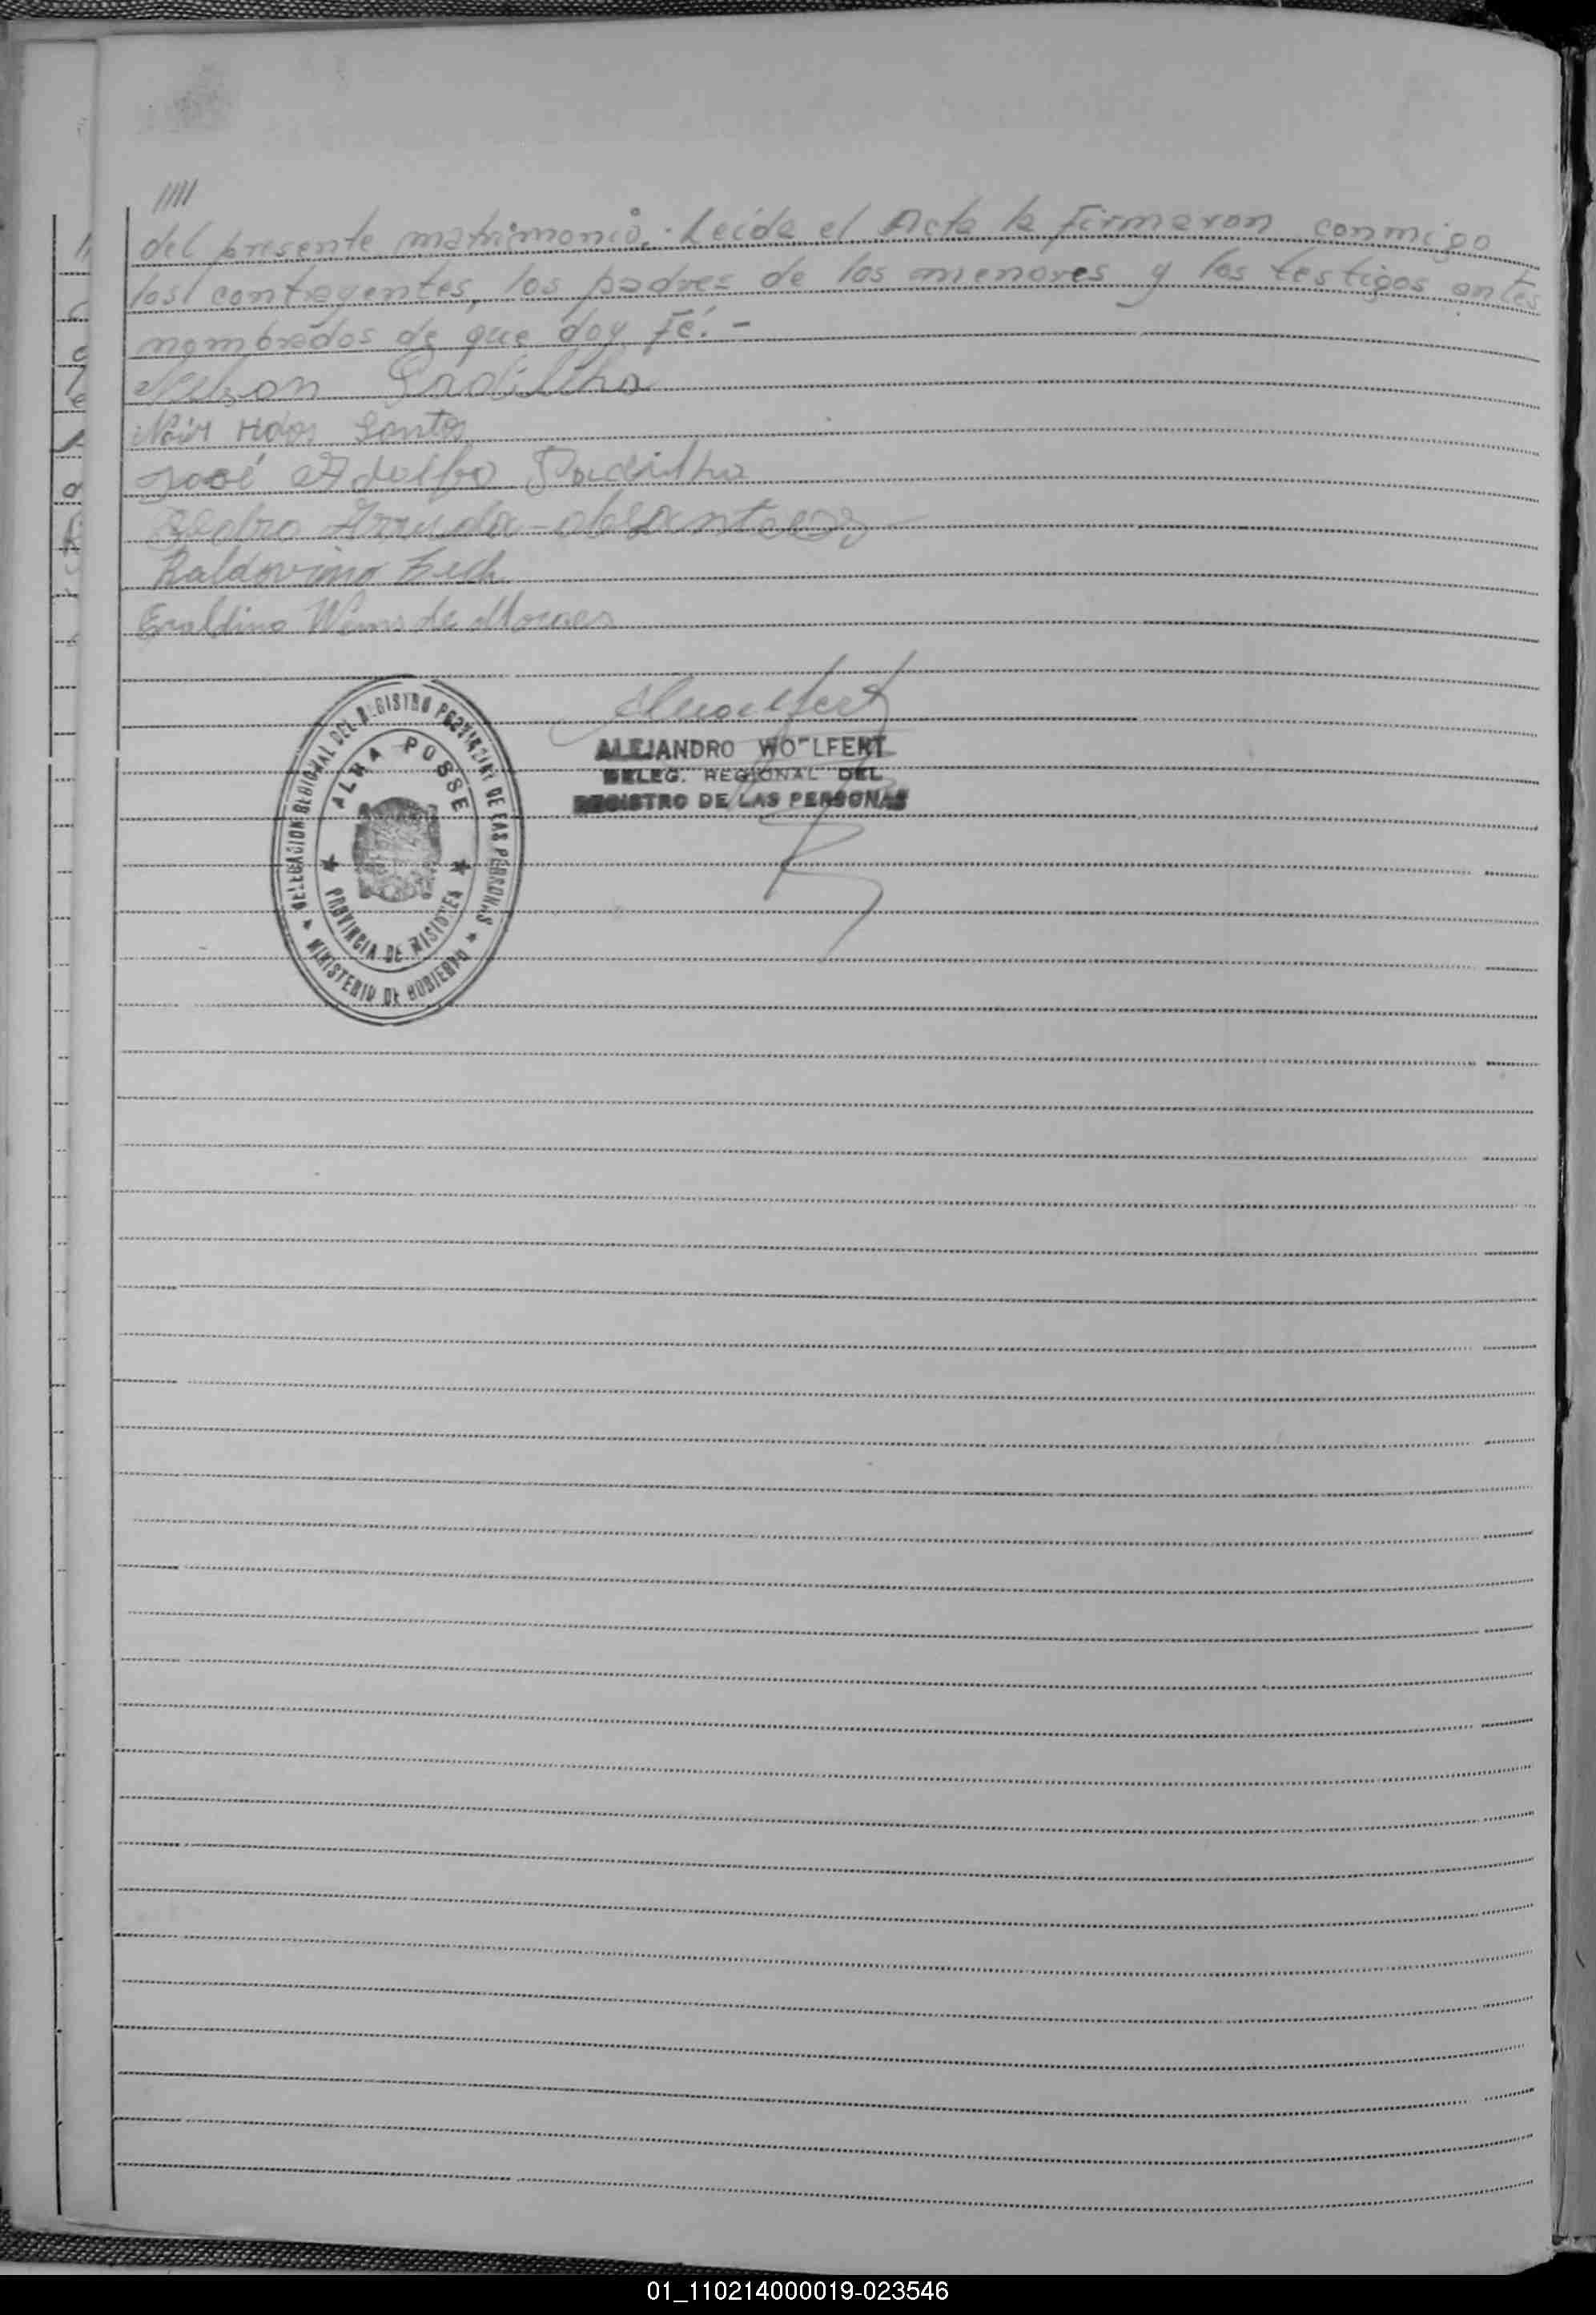 ////
del presente matrimonio.- Leída el Acta la firmaron conmigo
los contrayentes, los padres de los menores y los testigos antes
nombrados de que doy Fé.-
Nelson Padilha
Nair Hdos Santos
José Adolfo Padilha
Pedro Arruda dos santos
Baldovino Zech
Eraldino de Moraes
ALEJANDRO WOLFERT
DELEG. REGIONAL DEL
REGISTRO DE LAS PERSONAS
DELEGACION REGIONAL DEL REGISTRO PROVINCIAL DE LAS PERSONAS
ALBA POSSE
PROVINCIA DE MISIONES
MINISTERIO DE GOBIERNO
01_110214000019-023546